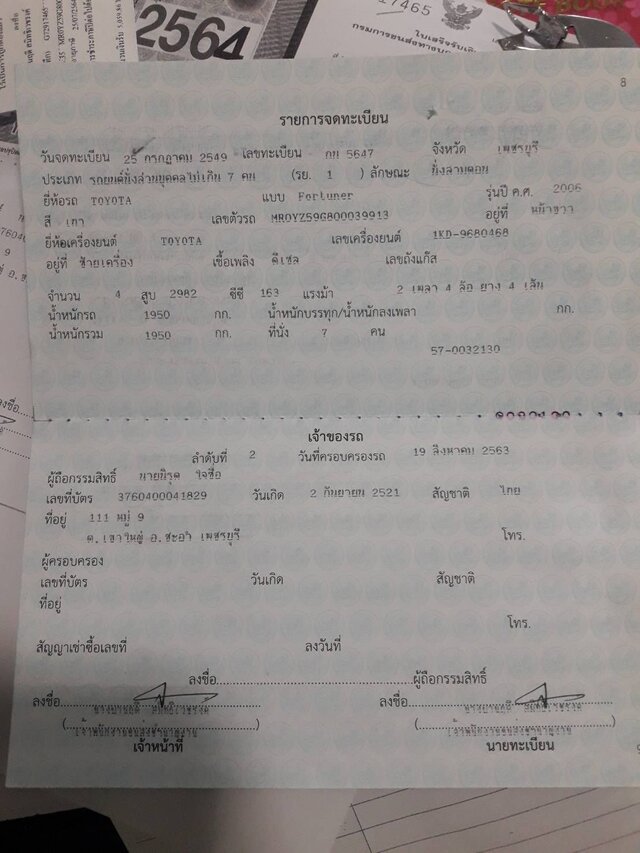 2564
17465
ใบเสร็จรับเงิน
กรมการขนส่งทางบก
8
รายการจดทะเบียน
วันจดทะเบียน 25 กรกฎาคม 2549 เลขทะเบียน กน 5647 จังหวัด เพชรบุรี
ประเภท รถยนต์นั่งส่วนบุคคลไม่เกิน 7 คน (รย. 1 ) ลักษณะ นั่งสามตอน
ยี่ห้อรถ TOYOTA แบบ Fortuner รุ่นปี ค.ศ. 2006
สี เทา เลขตัวรถ MR0YZ59G800039913 อยู่ที่ หน้าขวา
ยี่ห้อเครื่องยนต์ TOYOTA เลขเครื่องยนต์ 1KD-9680468
อยู่ที่ ซ้ายเครื่อง เชื้อเพลิง ดีเซล เลขถังแก๊ส
จำนวน 4 สูบ 2982 ซีซี 163 แรงม้า 2 เพลา 4 ล้อ ยาง 4 เส้น
น้ำหนักรถ 1950 กก. น้ำหนักบรรทุก/น้ำหนักลงเพลา กก.
น้ำหนักรวม 1950 กก. ที่นั่ง 7 คน
57-0032130
เจ้าของรถ
ลำดับที่ 2 วันที่ครอบครองรถ 19 สิงหาคม 2563
ผู้ถือกรรมสิทธิ์ นายนิรุต ใจซื่อ
เลขที่บัตร 3760400041829 วันเกิด 2 กันยายน 2521 สัญชาติ ไทย
ที่อยู่ 111 หมู่ 9
ต.เขาใหญ่ อ.ชะอำ เพชรบุรี โทร.
ผู้ครอบครอง
เลขที่บัตร วันเกิด สัญชาติ
ที่อยู่
โทร.
สัญญาเช่าซื้อเลขที่ ลงวันที่
ลงชื่อ ผู้ถือกรรมสิทธิ์
ลงชื่อ ลงชื่อ
เจ้าหน้าที่ นายทะเบียน